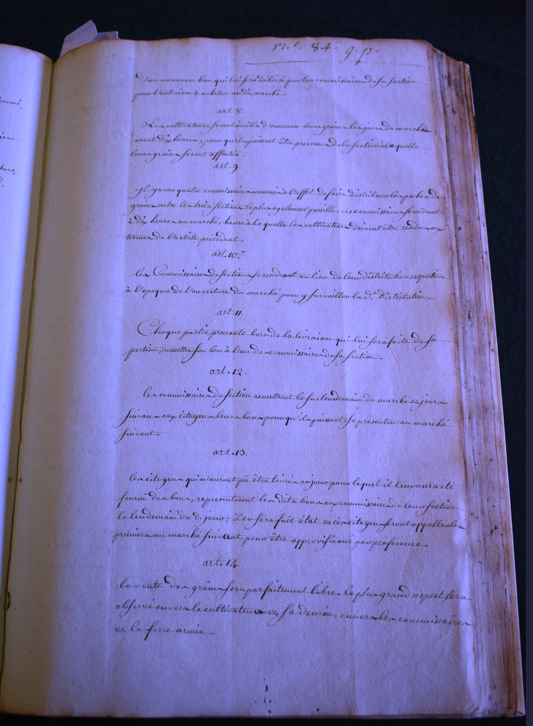 n.° 84. g. p.
d'un nouveau bon qui lui sera délivré par les commissaires de sa section
pour l'autoriser à acheter au dit marché.
art. 8.
Les cultivateurs seront invités d'amener leurs grains les jours de marché
avant dix heures, pour qu'ils puissent être prévenus de la section à laquelle
leurs grains seront affectés.
art. 9
Il y aura quatre commissaires nommés à l'effet de faire distribuer les poches de
grains entre les trois sections le plus également possible; ces commissaires se rendront
à dix heures au marché, heure à laquelle les cultivateurs doivent être rendus aux
termes de l'article précédent.
art. 10.
les Commissaires de section se rendront au lieu de leur distribution respective
à l'époque de l'ouverture du marché pour y surveiller la d.e distribution.
art. 11.
Chaque partie prenante lors de la livraison qui lui sera faite de sa
portion, remettra son bon à l'un des commissaires de sa section.
art. 12.
les commissaires de section remettront le surlendemain du marché et jours
suivans aux citoyens leurs bons pour qu'ils puissent se présenter au marché
suivant.
art. 13.
les citoyens qui n'auront pu être livrés au jour pour lequel il leur aura été
fourni des bons, représenteront les dits bons aux commissaires de leur section
le lendemain du d. jour; il en sera fait état et ces citoyens seront appellés les
premiers au marché suivant pour être approvisionnés par préférence.
art. 14
la vente des grains sera parfaitement libre, le plus grand respect sera
observé envers le cultivateur et sa denrée, envers les commissaires
et la force armée.